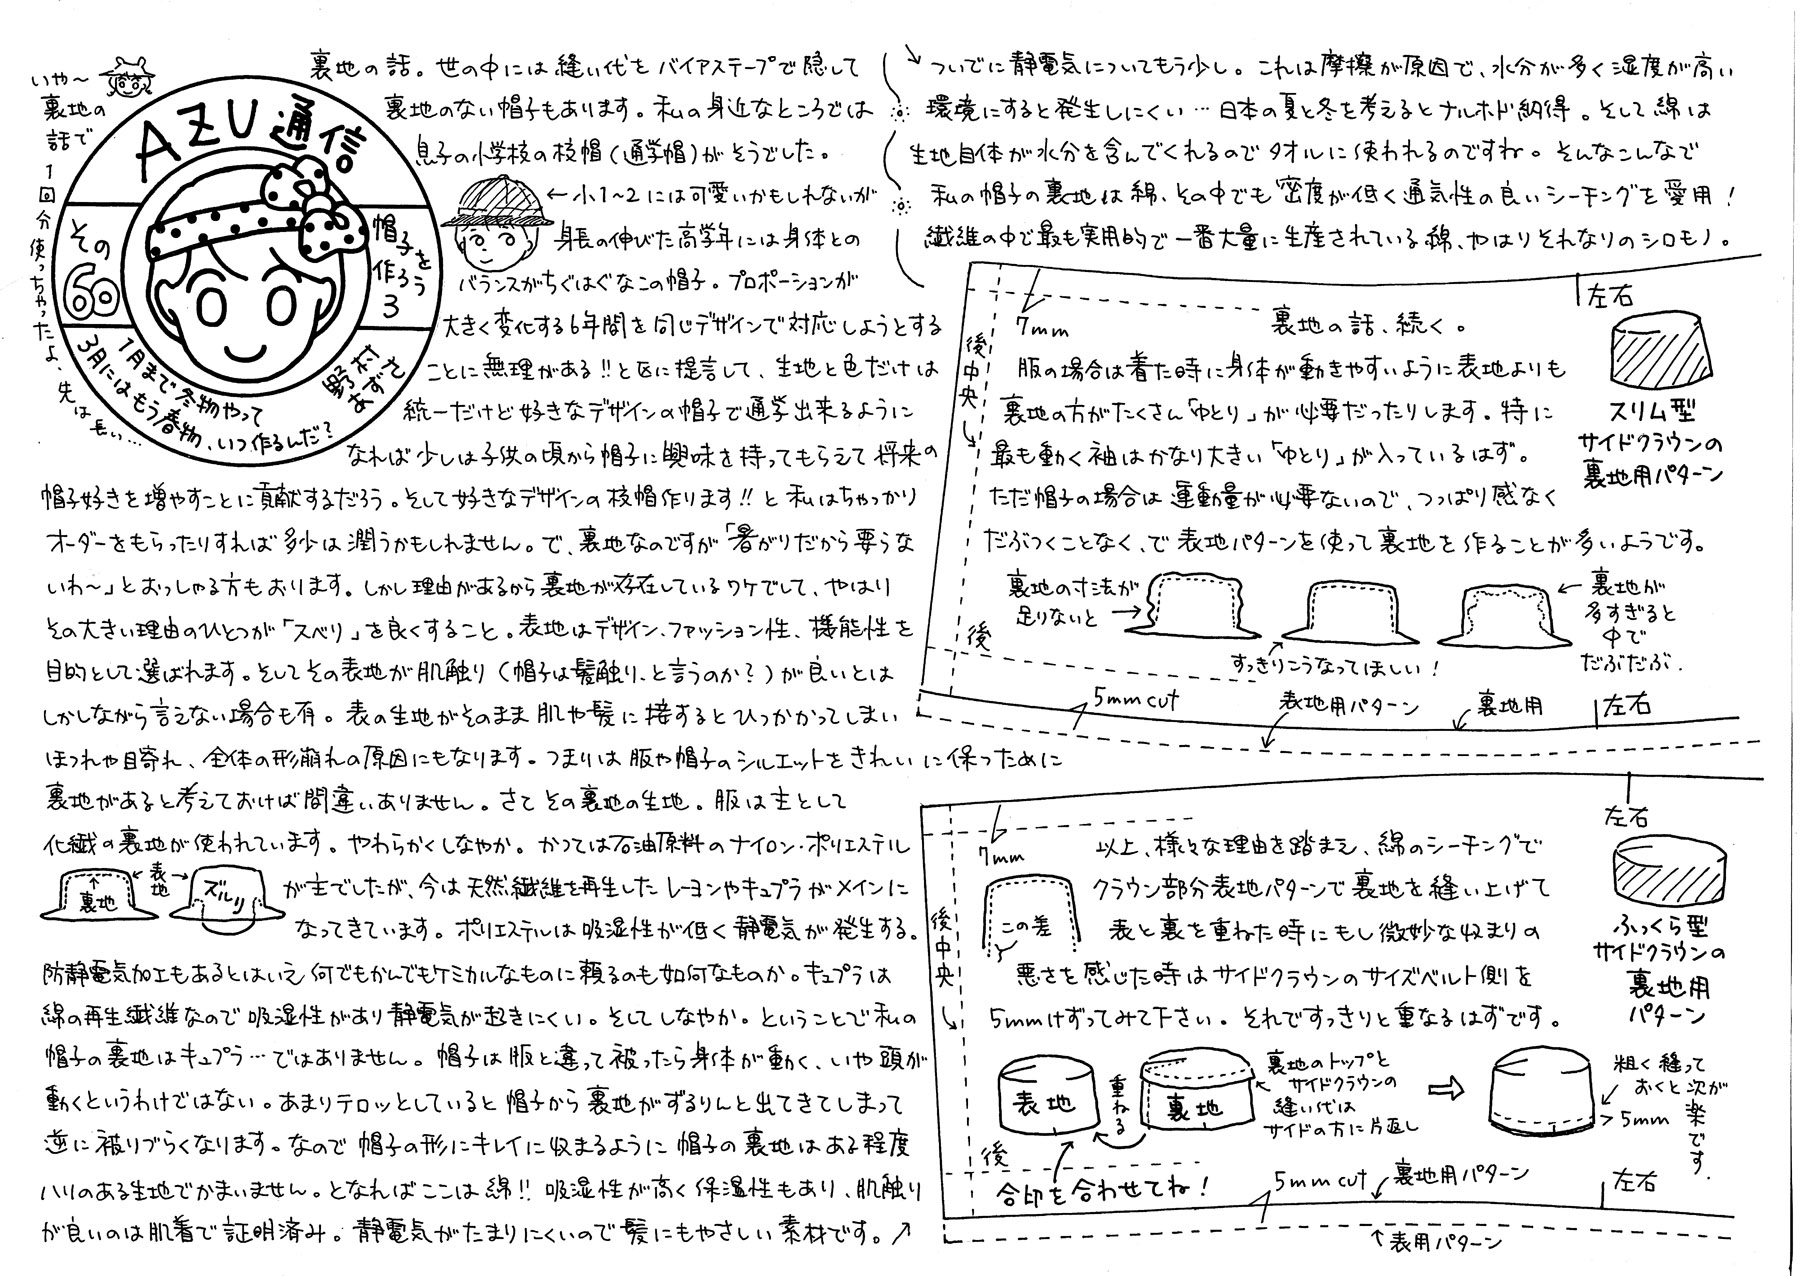 いや〜
裏地の
話で
1回分使っちゃったよ、先は長い…
AZU通信
その
60
帽子を
作ろう
3
1月まで冬物やって
3月にはもう春物、いつ作るんだ?
野村あずさ
裏地の話。世の中には縫い代をバイアステープで隠して
裏地のない帽子もあります。私の身近なところでは
息子の小学校の校帽(通学帽)がそうでした。
←小1〜2には可愛いかもしれないが
身長の伸びた高学年には身体との
バランスがちぐはぐなこの帽子。プロポーションが
大きく変化する6年間を同じデザインで対応しようとする
ことに無理がある!!と区に提言して、生地と色だけは
統一だけど好きなデザインの帽子で通学出来るように
なれば少しは子供の頃から帽子に興味を持ってもらえて将来の
帽子好きを増やすことに貢献するだろう。そして好きなデザインの校帽作ります!!と私はちゃっかり
オーダーをもらったりすれば多少は潤うかもしれません。で、裏地なのですが「暑がりだから要らな
いわ〜」とおっしゃる方もおります。しかし理由があるから裏地が存在しているワケでして、やはり
その大きい理由のひとつが「スベリ」を良くすること。表地はデザイン、ファッション性、機能性を
目的として選ばれます。そしてその表地が肌触り(帽子は髪触り、と言うのか?)が良いとは
しかしながら言えない場合も有。表の生地がそのまま肌や髪に接するとひっかかってしまい
ほつれや目寄れ、全体の形崩れの原因にもなります。つまりは服や帽子のシルエットをきれいに保つために
裏地があると考えておけば間違いありません。さてその裏地の生地。服は主として
化繊の裏地が使われています。やわらかくしなやか。かつては石油原料のナイロン・ポリエステル
裏地
表地
ズルリ
が主でしたが、今は天然繊維を再生したレーヨンやキュプラがメインに
なってきています。ポリエステルは吸湿性が低く静電気が発生する。
防静電気加工もあるとはいえ何でもかんでもケミカルなものに頼るのも如何なものか。キュプラは
綿の再生繊維なので吸湿性があり静電気が起きにくい。そしてしなやか。ということで私の
帽子の裏地はキュプラ…ではありません。帽子は服と違って被ったら身体が動く、いや頭が
動くというわけではない。あまりテロッとしていると帽子から裏地がずるりんと出てきてしまって
逆に被りづらくなります。なので帽子の形にキレイに収まるように帽子の裏地はある程度
ハリのある生地でかまいません。となればここは綿!!吸湿性が高く保温性もあり、肌触り
が良いのは肌着で証明済み。静電気がたまりにくいので髪にもやさしい素材です。↗
ついでに静電気についてもう少し。これは摩擦が原因で、水分が多く湿度が高い
環境にすると発生しにくい…日本の夏と冬を考えるとナルホド納得。そして綿は
生地自体が水分を含んでくれるのでタオルに使われるのですね。そんなこんなで
私の帽子の裏地は綿、その中でも密度が低く通気性の良いシーチングを愛用!
繊維の中で最も実用的で一番大量に生産されている綿、やはりそれなりのシロモノ。
7mm
左右
後中央
裏地の話、続く。
服の場合は着た時に身体が動きやすいように表地よりも
裏地の方がたくさん「ゆとり」が必要だったりします。特に
最も動く袖はかなり大きい「ゆとり」が入っているはず。
ただ帽子の場合は運動量が必要ないので、つっぱり感なく
だぶつくことなく、で表地パターンを使って裏地を作ることが多いようです。
スリム型
サイドクラウンの
裏地用パターン
裏地の寸法が
足りないと→
すっきりこうなってほしい!
←裏地が
多すぎると
中で
だぶだぶ.
後
5mm cut
表地用パターン
裏地用
左右
7mm
左右
後中央
以上、様々な理由を踏まえ、綿のシーチングで
クラウン部分表地パターンで裏地を縫い上げて
表と裏を重ねた時にもし微妙な収まりの
悪さを感じた時はサイドクラウンのサイズベルト側を
5mmけずってみて下さい。それですっきりと重なるはずです。
この差
ふっくら型
サイドクラウンの
裏地用
パターン
表地
重ねる
裏地
裏地のトップと
サイドクラウンの
縫い代は
サイドの方に片返し
⇨
粗く縫って
おくと次が
楽です.
5mm
合印を合わせてね!
後
5mm cut
裏地用パターン
左右
↑表用パターン